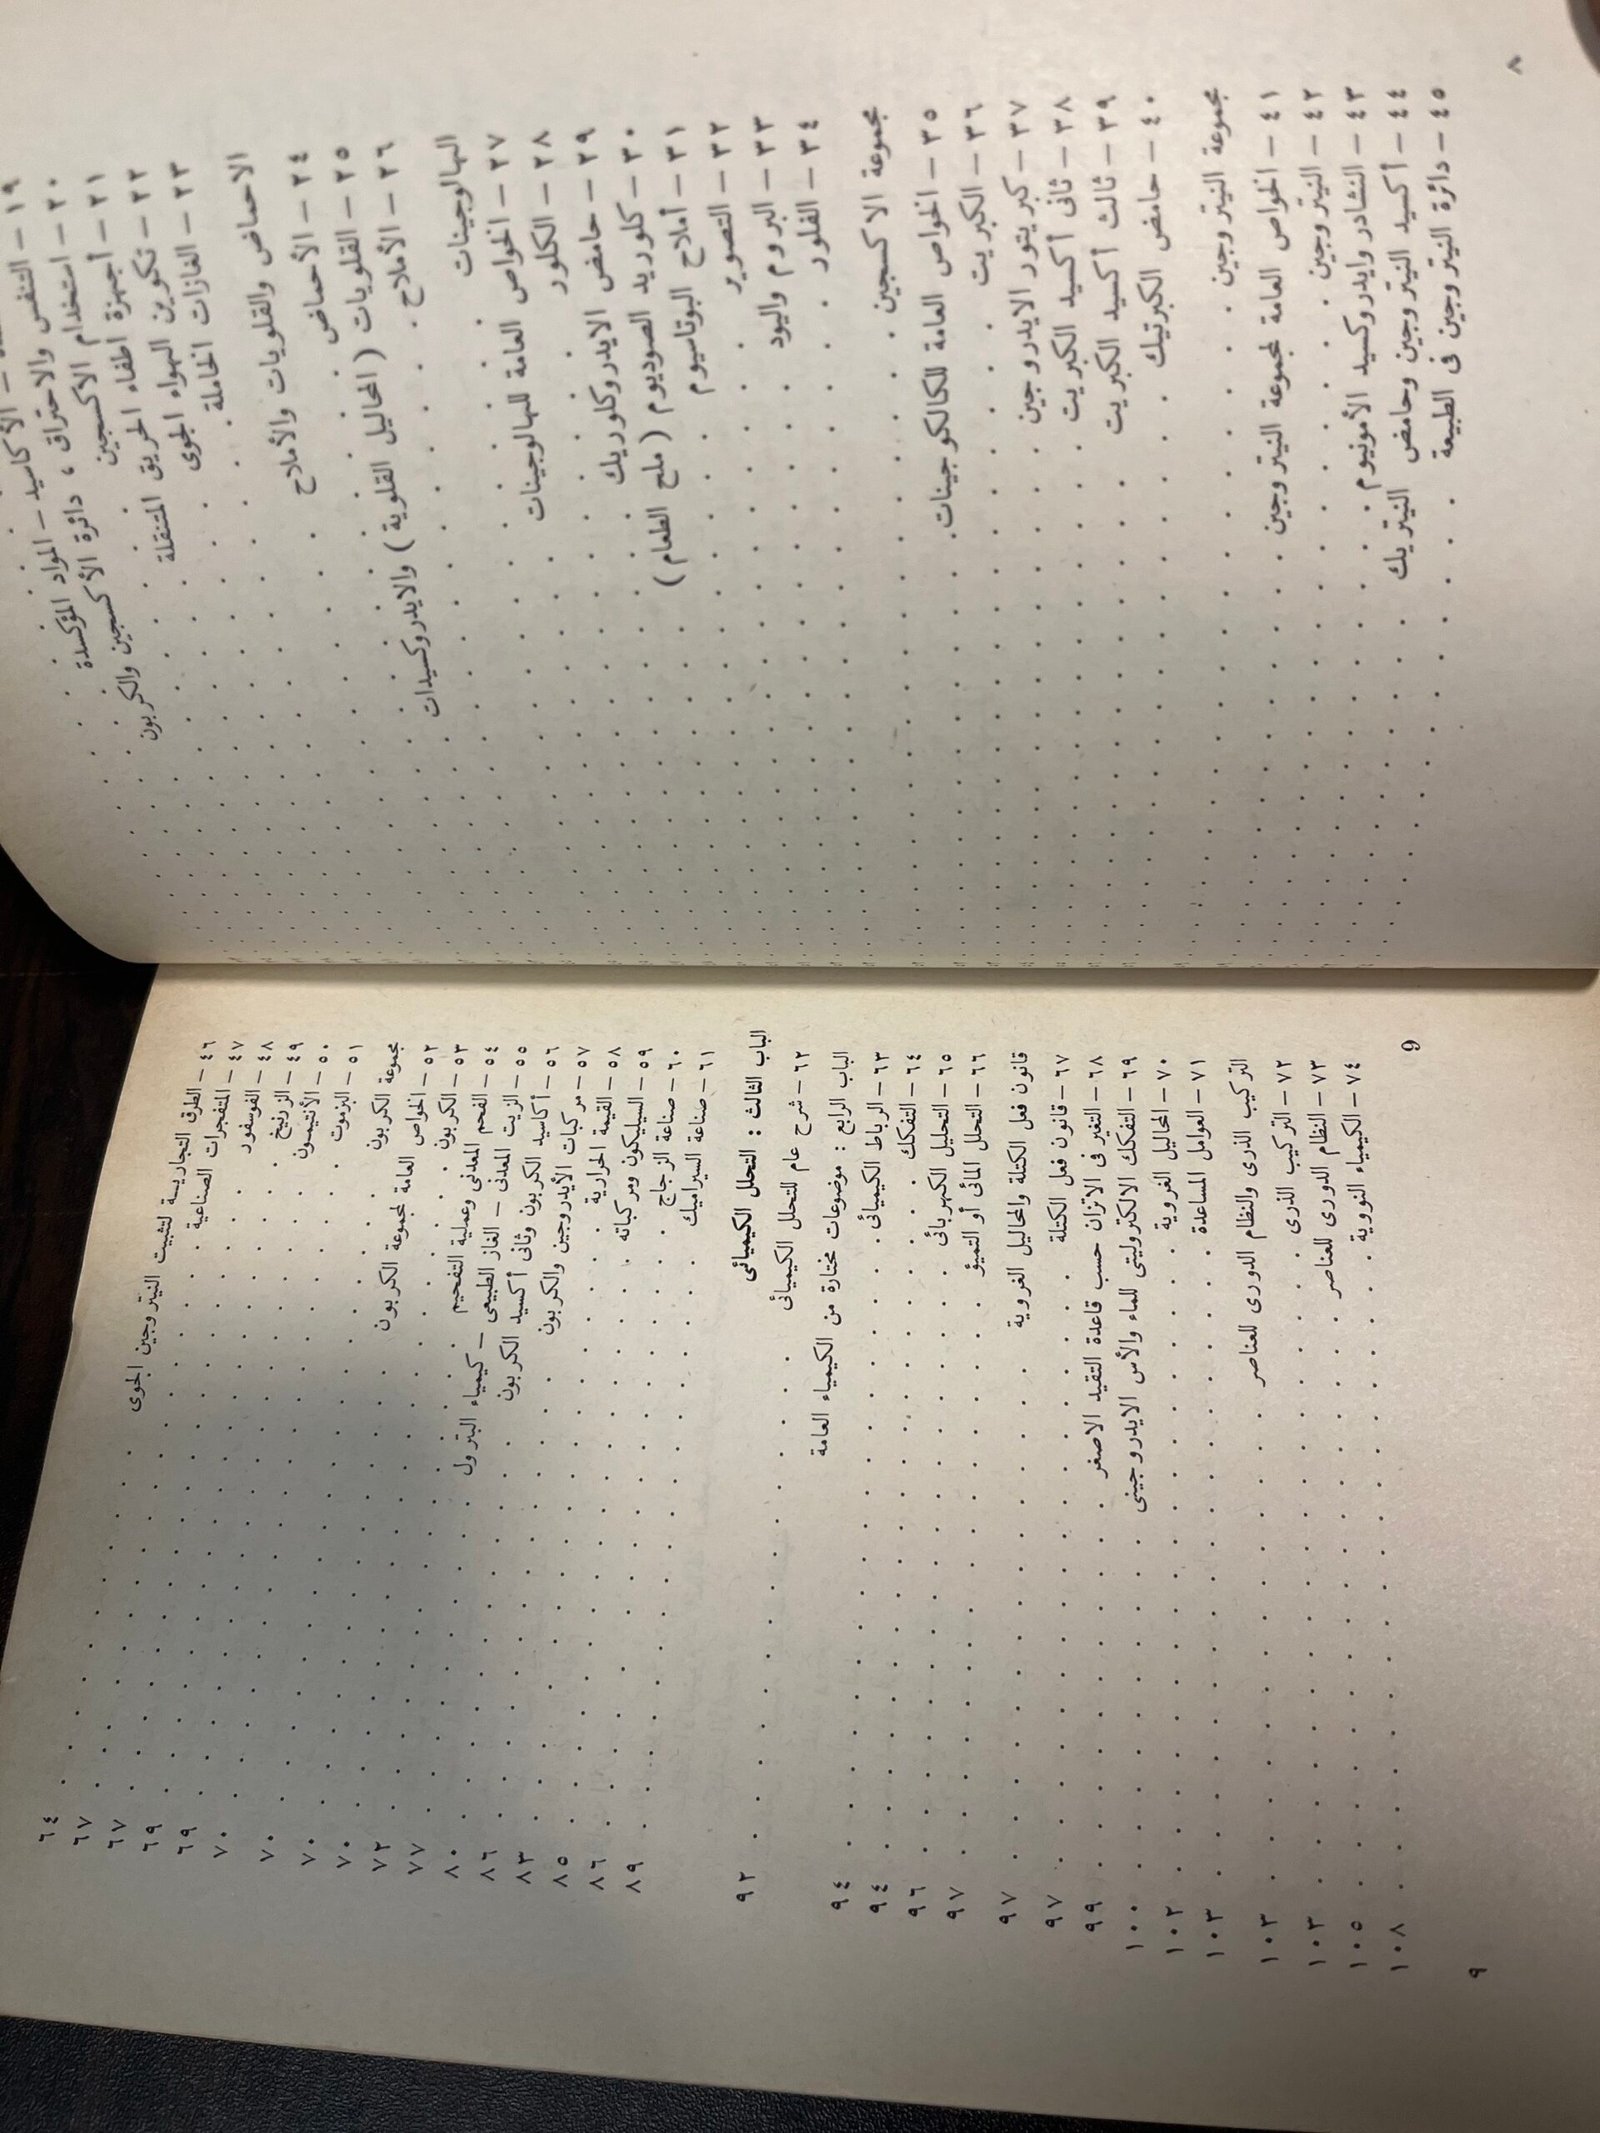 ١٩ – الأكاسيد – المواد المؤكسدة
٢٠ – التنفس والاحتراق ، دائرة الأكسجين والكربون
٢١ – استخدام الأكسجين
٢٢ – أجهزة اطفاء الحريق المتنقلة
٢٣ – تكوين الهواء الجوى
الغازات الخاملة
الاحماض والقلويات والأملاح
٢٤ – الأحماض
٢٥ – القلويات (المحاليل القلوية) والايدروكسيدات
٢٦ – الأملاح
الهالوجينات
٢٧ – الخواص العامة للهالوجينات
٢٨ – الكلور
٢٩ – حامض الايدروكلوريك
٣٠ – كلوريد الصوديوم (ملح الطعام)
٣١ – أملاح البوتاسيوم
٣٢ – التصوير
٣٣ – البروم واليود
٣٤ – الفلور
مجموعة الاكسجين
٣٥ – الخواص العامة للكالكوجينات
٣٦ – الكبريت
٣٧ – كبريتور الايدروجين
٣٨ – ثانى أكسيد الكبريت
٣٩ – ثالث أكسيد الكبريت
٤٠ – حامض الكبرتيك
مجموعة النيتروجين
٤١ – الخواص العامة لمجموعة النيتروجين
٤٢ – النيتروجين
٤٣ – النشادر وايدروكسيد الأمونيوم
٤٤ – أكسيد النيتروجين وحامض النيتريك
٤٥ – دائرة النيتروجين فى الطبيعة
٨
٤٦ – الطرق التجارية لتثبيت النيتروجين الجوى ٦٤
٤٧ – المتفجرات الصناعية ٦٧
٤٨ – الفوسفور ٦٧
٤٩ – الزرنيخ ٦٩
٥٠ – الأنتيمون ٦٩
٥١ – البزموت ٧٠
مجموعة الكربون ٧٠
٥٢ – الخواص العامة لمجموعة الكربون ٧٠
٥٣ – الكربون ٧٠
٥٤ – الفحم المعدنى وعملية التفحيم ٧٢
٥٥ – الزيت المعدنى – الغاز الطبيعى – كيمياء البترول ٧٧
٥٦ – أكاسيد الكربون وثانى أكسيد الكربون ٨٠
٥٧ – مركبات الأيدروجين والكربون ٨٦
٥٨ – القيمة الحرارية ٨٣
٥٩ – السيليكون ومركباته ٨٥
٦٠ – صناعة الزجاج ٨٦
٦١ – صناعة السيراميك ٨٩
الباب الثالث : التحلل الكيميائى
٦٢ – شرح عام للتحلل الكيميائى ٩٢
الباب الرابع : موضوعات مختارة من الكيمياء العامة
٦٣ – الرباط الكيميائى ٩٤
٦٤ – التفكك ٩٤
٦٥ – التحليل الكهربائى ٩٦
٦٦ – التحلل المائى أو التميؤ ٩٧
قانون فعل الكتلة والمحاليل الغروية ٩٧
٦٧ – قانون فعل الكتلة ٩٧
٦٨ – التغير فى الاتزان حسب قاعدة التقيد الاصغر ٩٩
٦٩ – التفكك الالكتروليتى للماء والأس الايدروجينى ١٠٠
٧٠ – المحاليل الغروية ١٠٢
٧١ – العوامل المساعدة ١٠٣
التركيب الذرى والنظام الدورى للعناصر ١٠٣
٧٢ – التركيب الذرى ١٠٣
٧٣ – النظام الدورى للعناصر ١٠٥
٧٤ – الكيمياء النووية ١٠٨
9
٩